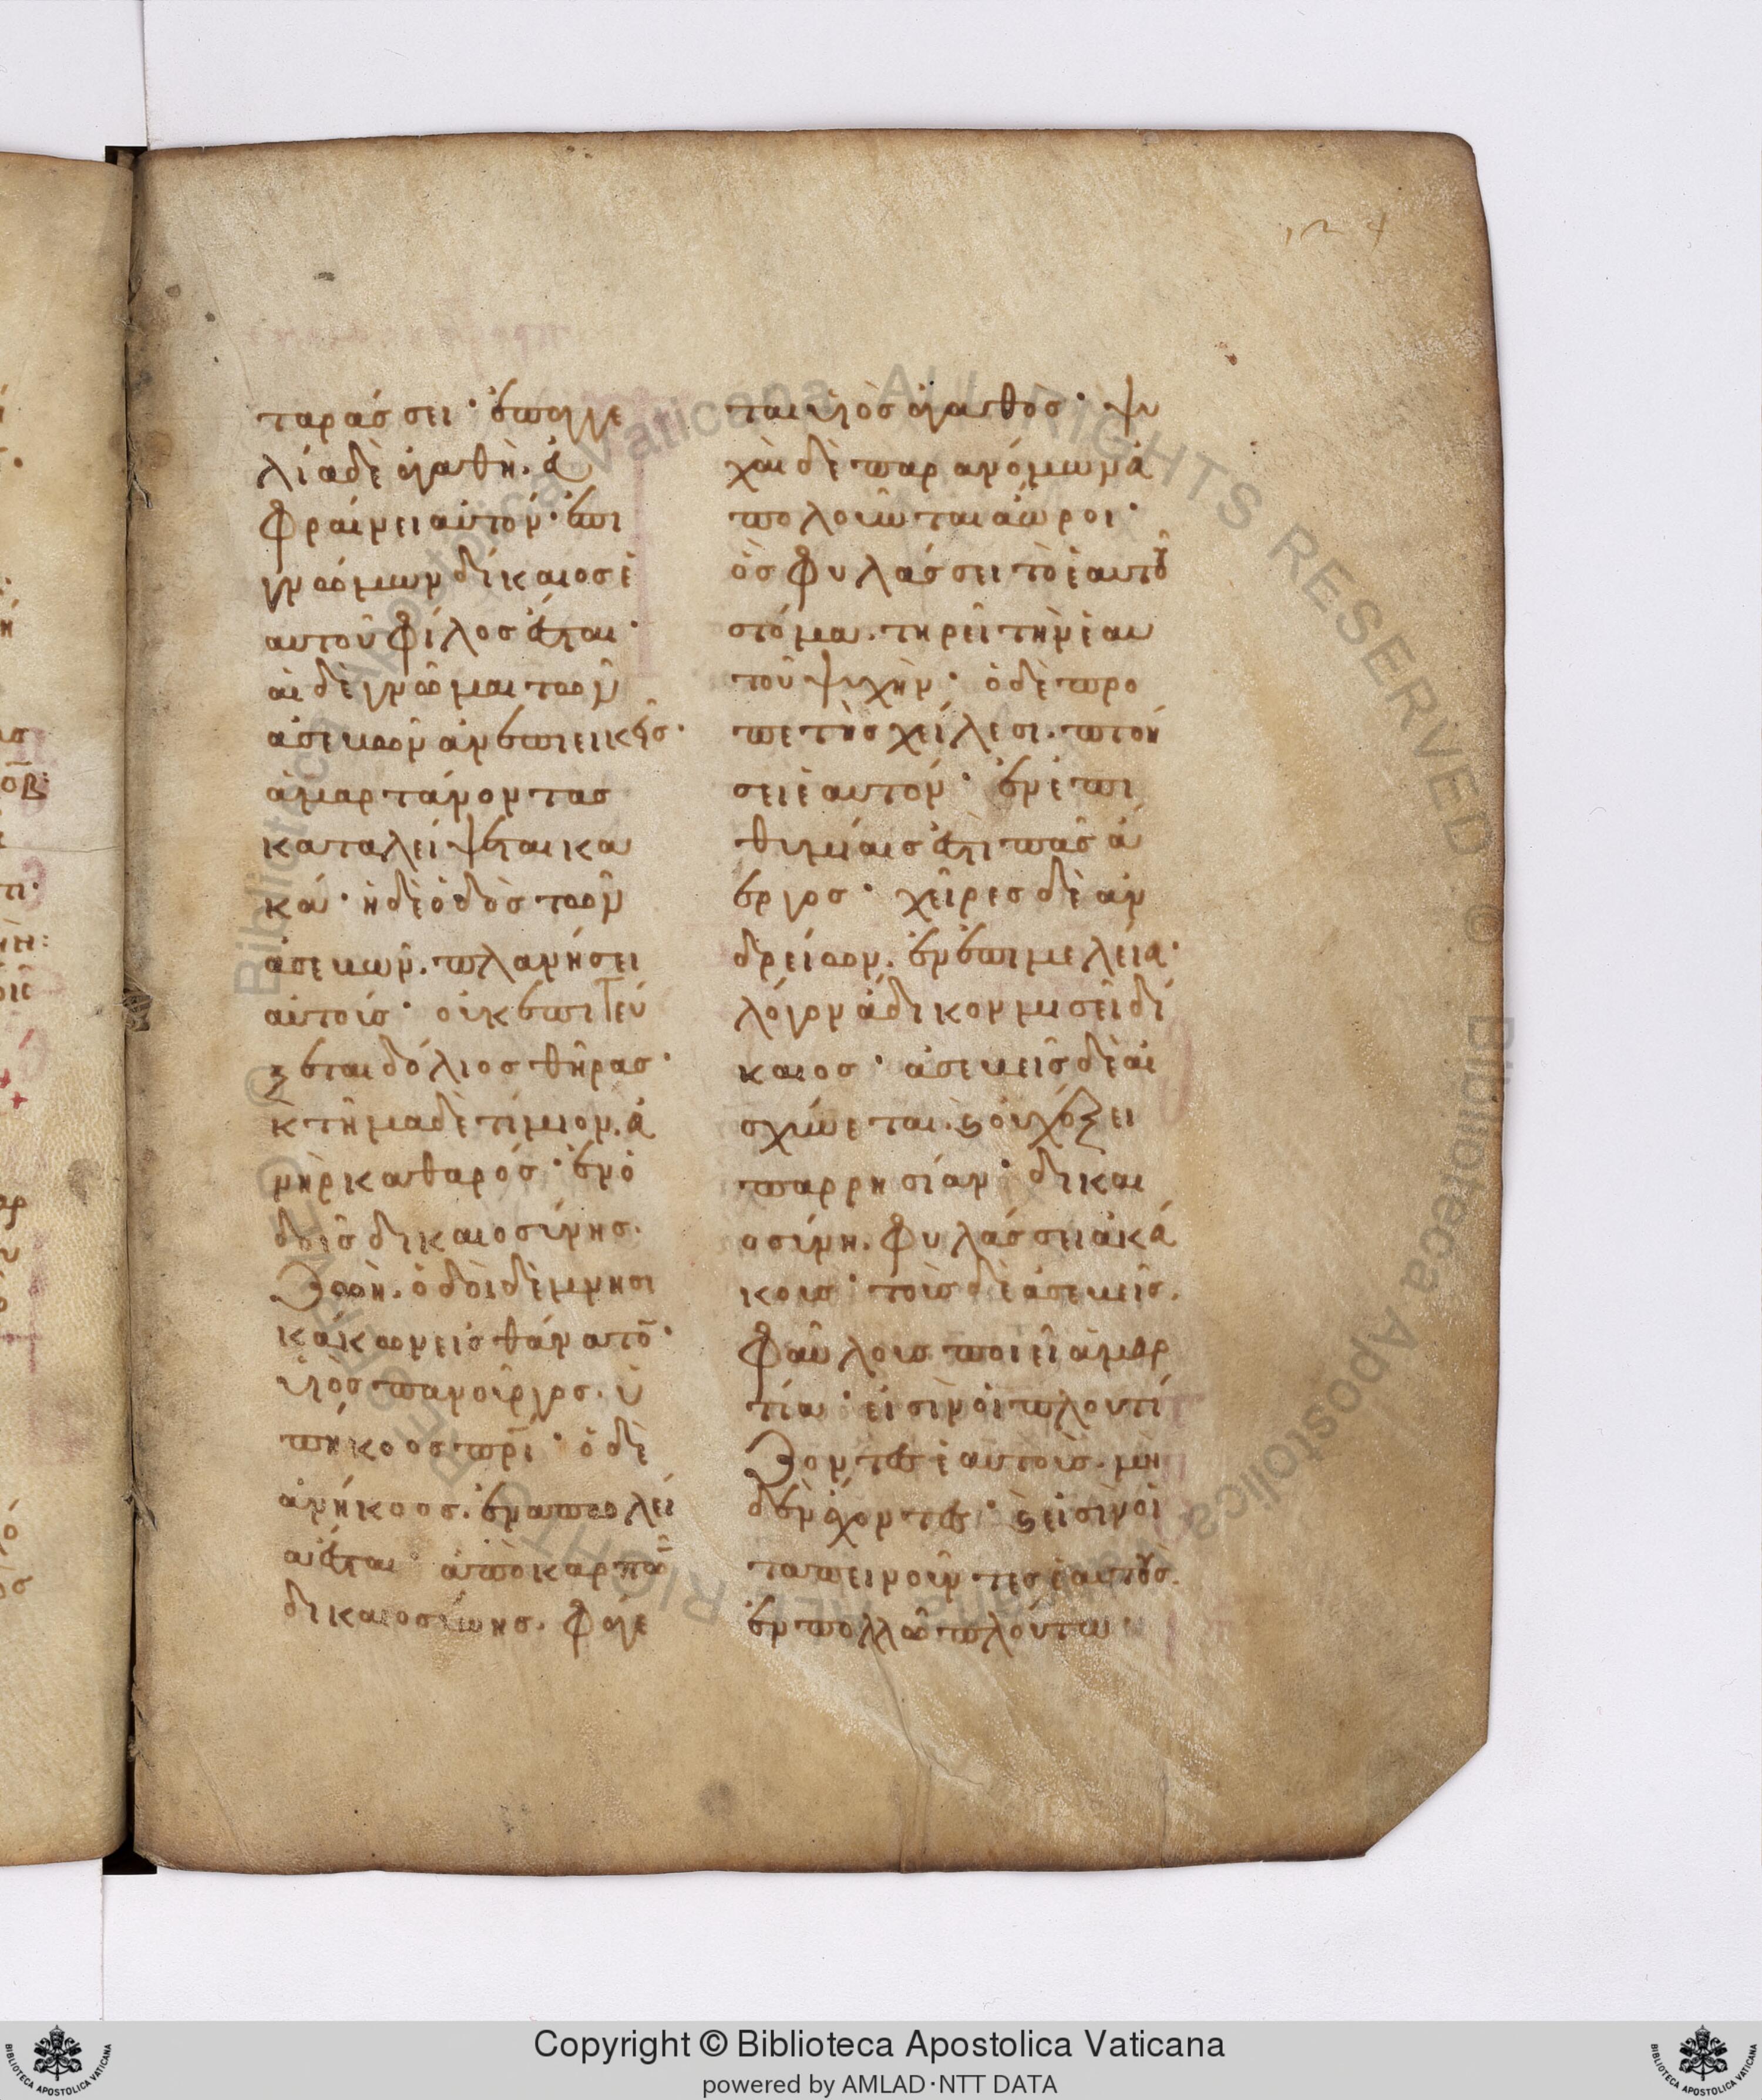 ταράσσει· ἐπαγγε
λία δὲ ἀγαθὴ. εὐ
φραίνει αὐτόν· ἐπι
γνώμων δίκαιος ἑ
αυτοῦ φίλος ἔσται·
αἱ δὲ γνῶμαι τῶν
ἀσεβῶν ἀνεπιεικεῖς·
ἁμαρτάνοντας
καταλείψεται κα
κά· ἡ δὲ ὁδὸς τῶν
ἀσεβῶν. πλανήσει
αὐτούς· οὐκ ἐπιτεύ
ξεται δόλιος θήρας·
κτῆμα δὲ τίμιον. ἀ
νὴρ καθαρός· ἐν ὁ
δοῖς δικαιοσύνης.
ζωὴ. ὁδοὶ δὲ μνησι
κάκων εἰς θάνατον·
υἱὸς πανοῦργος. ὑ
πήκοος πρι· ὁ δὲ
ἀνήκοος. ἐν ἀπωλεί
α ἔσται· ἀπὸ καρπῶν
δικαιοσύνης. φάγε
ται υἱὸς ἀγαθὸς· ψυ
χαὶ δὲ παρανόμων ἀ
πολοῦνται ἄωροι·
ὃς φυλάσσει τὸ ἑαυτοῦ
στόμα. τηρεῖ τὴν ἑαυ
τοῦ ψυχὴν· ὁ δὲ προ
πετὴς χείλεσι. πτοή
σει ἑαυτόν· ἐν ἐπι
θυμίαις ἐστὶ πᾶς ἀ
εργος· χεῖρες δὲ ἀν
δρείων. ἐν ἐπιμελείᾳ·
λόγον ἄδικον μισεῖ δί
καιος· ἀσεβεῖς δὲ αἰ
σχύνεται. ϗ οὐχ ἕξει
παρρησίαν· δικαι
οσύνη. φυλάσσει ἀκά
κους· τοὺς δὲ ἀσεβεῖς.
φαύλους ποιεῖ ἁμαρ
τία· εἰσὶν οἱ πλουτί
ζοντες ἑαυτοὺς. μη
δὲν ἔχοντες· ϗ εἰσὶν οἱ
ταπεινοῦντες ἑαυτοὺς.
ἐν πολλῷ πλούτῳ